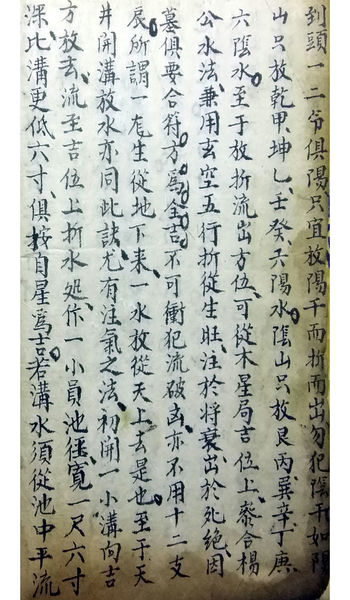 到頭一二爷俱陽只宜放陽干而折而出勿犯陰干如陽
山只放乾甲坤乙壬癸六陽水陰山只放艮丙巽辛丁庚
六陰水至于放折流出方位可從木星局吉位上叅合楊
公水法兼用玄空五行折從生旺注於將衰出於死絕因
墓俱要合符方為全吉不可衝犯流破凶亦不用十二支
辰所謂一左生從地下来一水放從天上去是也至于天
井開溝放水亦同此訣尤有注氣之法初開一小溝向吉
方放玄流至吉位上折水処作一小員池徑寬一尺六寸
深比溝更低六寸俱按自星為吉若溝水須從池中平流